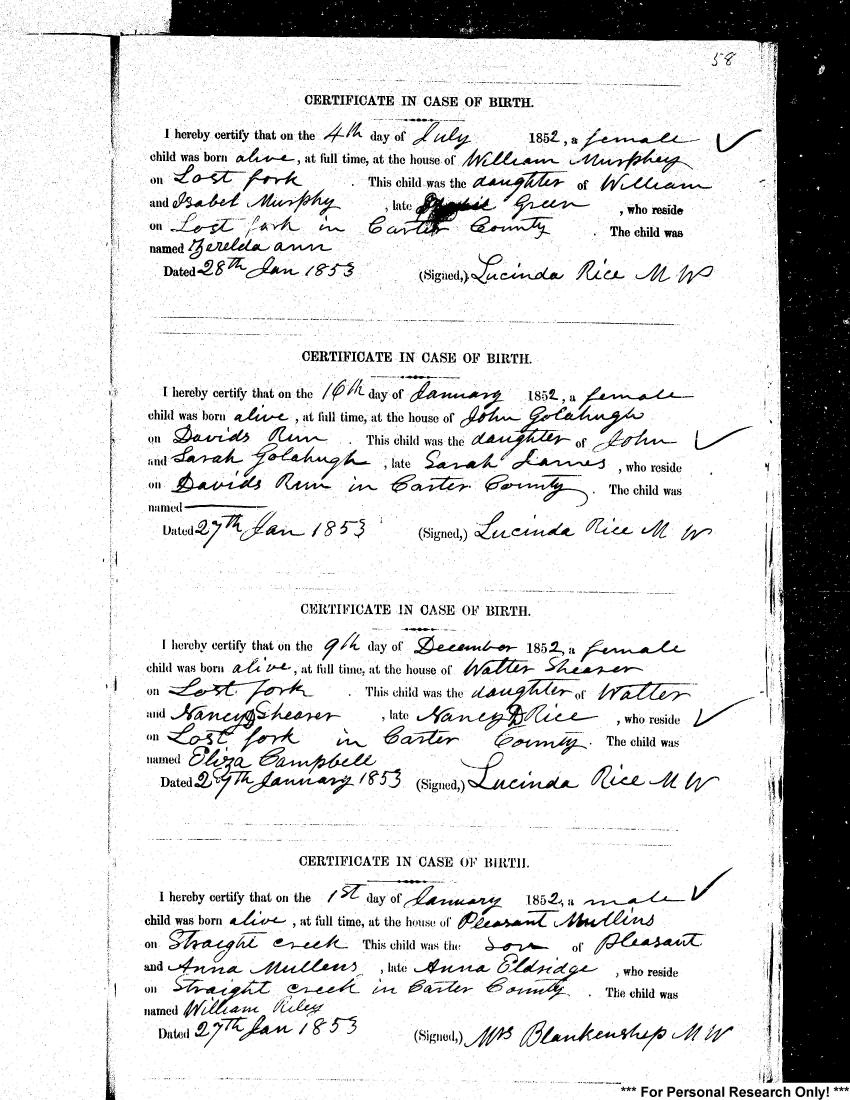 58
CERTIFICATE IN CASE OF BIRTH.
I hereby certify that on the 4th day of July 1852, a female
child was born alive, at full time, at the house of William Murphey
on Lost fork . This child was the daughter of William
and Isabel Murphy , late Green , who reside
on Lost fork in Carter County . The child was
named Zerelda ann
Dated 28th Jan 1853 (Signed,) Lucinda Rice M W
CERTIFICATE IN CASE OF BIRTH.
I hereby certify that on the 16th day of January 1852, a female
child was born alive , at full time, at the house of John Golahugh
on Davids Run . This child was the daughter of John
and Sarah Golahugh , late Sarah James , who reside
on Davids Run in Carter County . The child was
named
Dated 27th Jan 1853 (Signed,) Lucinda Rice M W
CERTIFICATE IN CASE OF BIRTH.
I hereby certify that on the 9th day of December 1852, a female
child was born alive , at full time, at the house of Walter Shearer
on Lost fork . This child was the daughter of Walter
and Nancy D Shearer , late Nancy D Rice , who reside
on Lost fork in Carter County . The child was
named Eliza Campbell
Dated 27th January 1853 (Signed,) Lucinda Rice M W
CERTIFICATE IN CASE OF BIRTH.
I hereby certify that on the 1st day of January 1852, a male
child was born alive , at full time, at the house of Pleasant Mullins
on Straight creek This child was the Son of Pleasant
and Anna Mullens , late Anna Eldridge , who reside
on Straight creek in Carter County . The child was
named William Riley
Dated 27th Jan 1853 (Signed,) Mrs Blankenshep M W
*** For Personal Research Only! ***